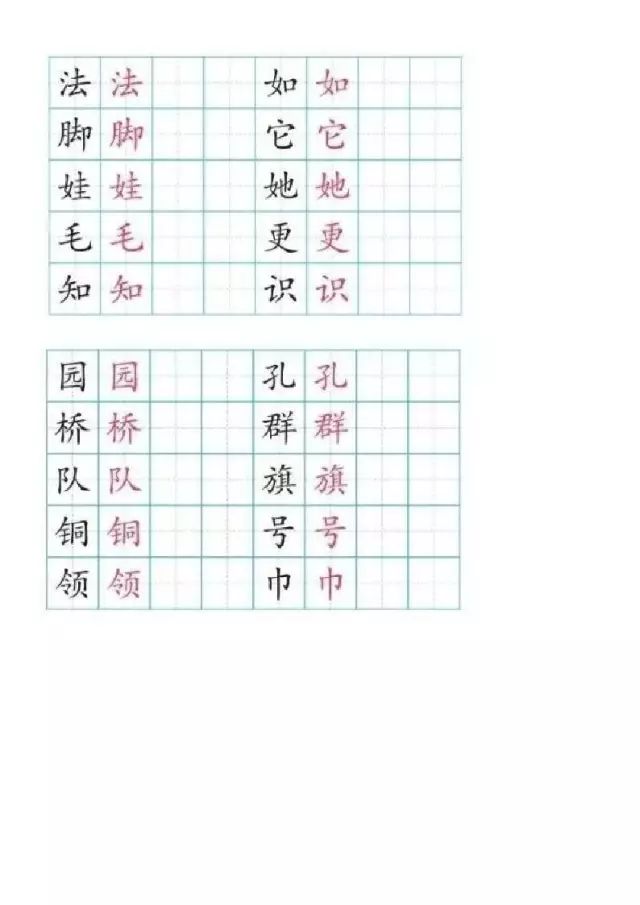 法 法 如 如
脚 脚 它 它
娃 娃 她 她
毛 毛 更 更
知 知 识 识
园 园 孔 孔
桥 桥 群 群
队 队 旗 旗
铜 铜 号 号
领 领 巾 巾